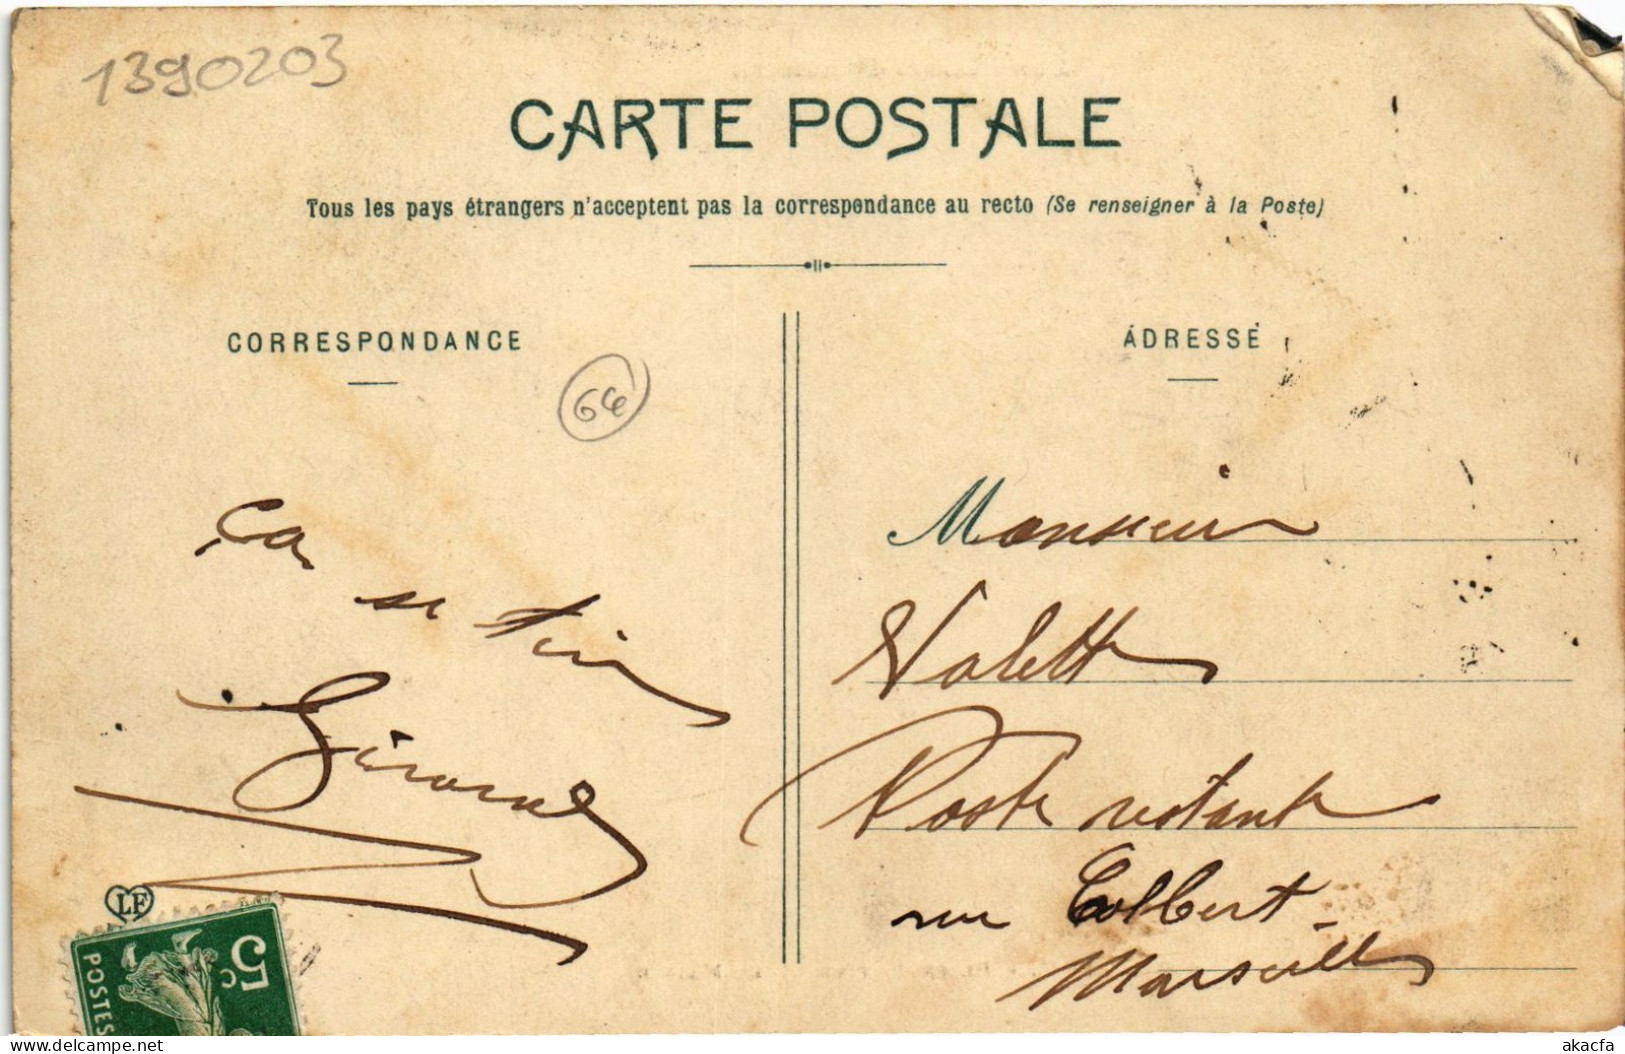 1390203
CARTE POSTALE
Tous les pays étrangers n'acceptent pas la correspondance au recto (Se renseigner à la Poste)
CORRESPONDANCE
64
Ça
se tire
Girard
LF
POSTES
5c
ADRESSE
Monsieur
Valette
Poste restante
rue Colbert
Marseille
delcampe.net
akacfa